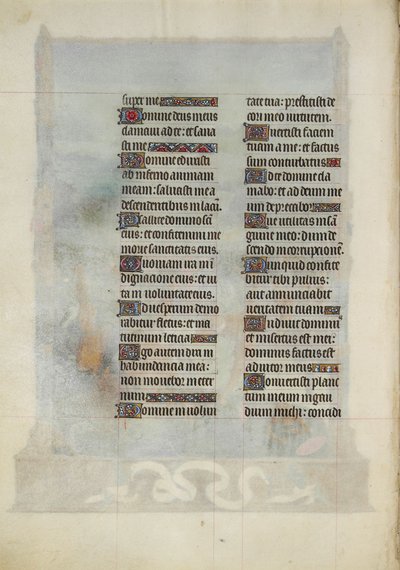 super me
Domine deus meus
clamaui ad te: et sana
sti me
Domine eduxisti
ab inferno animam
meam: saluasti me a
descendentibus in lacū.
Psallite domino sācti
eius: et confitemini me
morie sanctitatis eius.
Quoniam ira in ī
dignacione eius: et ui
ta in uoluntate eius.
Ad uesperum demo
rabitur fletus: et ma
tutinum leticia
Ego autem dixi in
habundencia mea:
non mouebor in eter
num
Domine in uolun
tate tua: prestitisti de
cori meo uirtutem.
Auertisti faciem
tuam a me: et factus
sum conturbatus
Ad te domine cla
mabo: et ad deum me
um deprecabor
Que utilitas in sā
guine meo: dum de
scendo in corrupcionē.
Nunquid confite
bitur tibi puluis:
aut annunciabit
ueritatem tuam
Audiuit dominus
et misertus est mei:
dominus factus est
adiutor meus
Conuertisti planc
tum meum in gau
dium michi: concidi